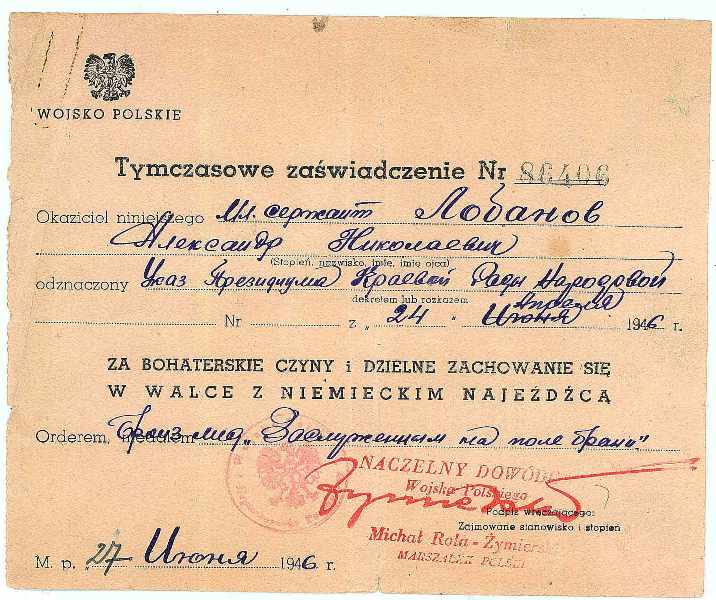 WOJSKO POLSKIE
Tymczasowe zaświadczenie Nr 86406
Okaziciel niniejszego Мл. сержант Лобанов
Александр Николаевич
(Stopień, nazwisko, imię, imię ojca)
odznaczony Указ Президиума Краевой Рады Народовой
dekretem lub rozkazem
Апреля
Nr z „ 24 „ Июня 1946 r.
ZA BOHATERSKIE CZYNY i DZIELNE ZACHOWANIE SIĘ
W WALCE Z NIEMIECKIM NAJEŹDŹCĄ
Orderem, medalem Бронз мед „Заслуженным на поле брани"
NACZELNY DOWÓDC
Wojska Polskiego
Podpis wręczającego:
Zajmowane stanowisko i stopień
Michał Rola-Żymiersk
MARSZAŁEK POLSKI
M. p. 27 Июня 1946 r.